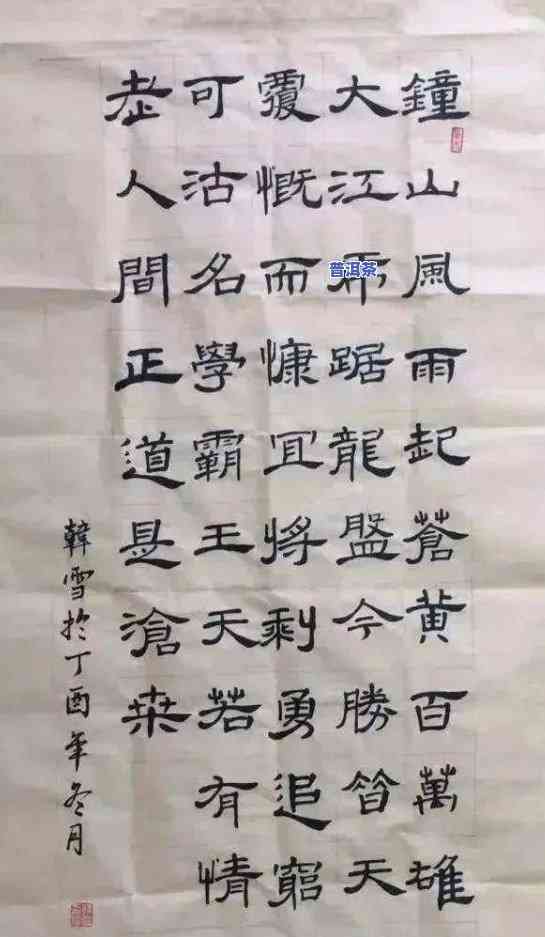 鐘山風雨起蒼黃百萬雄
大江虎踞龍盤今勝昔天
覆慨而慷宜將剩勇追窮
可沽名學霸王天若有情
老人間正道是滄桑
韓雪於丁酉年冬月
普洱茶